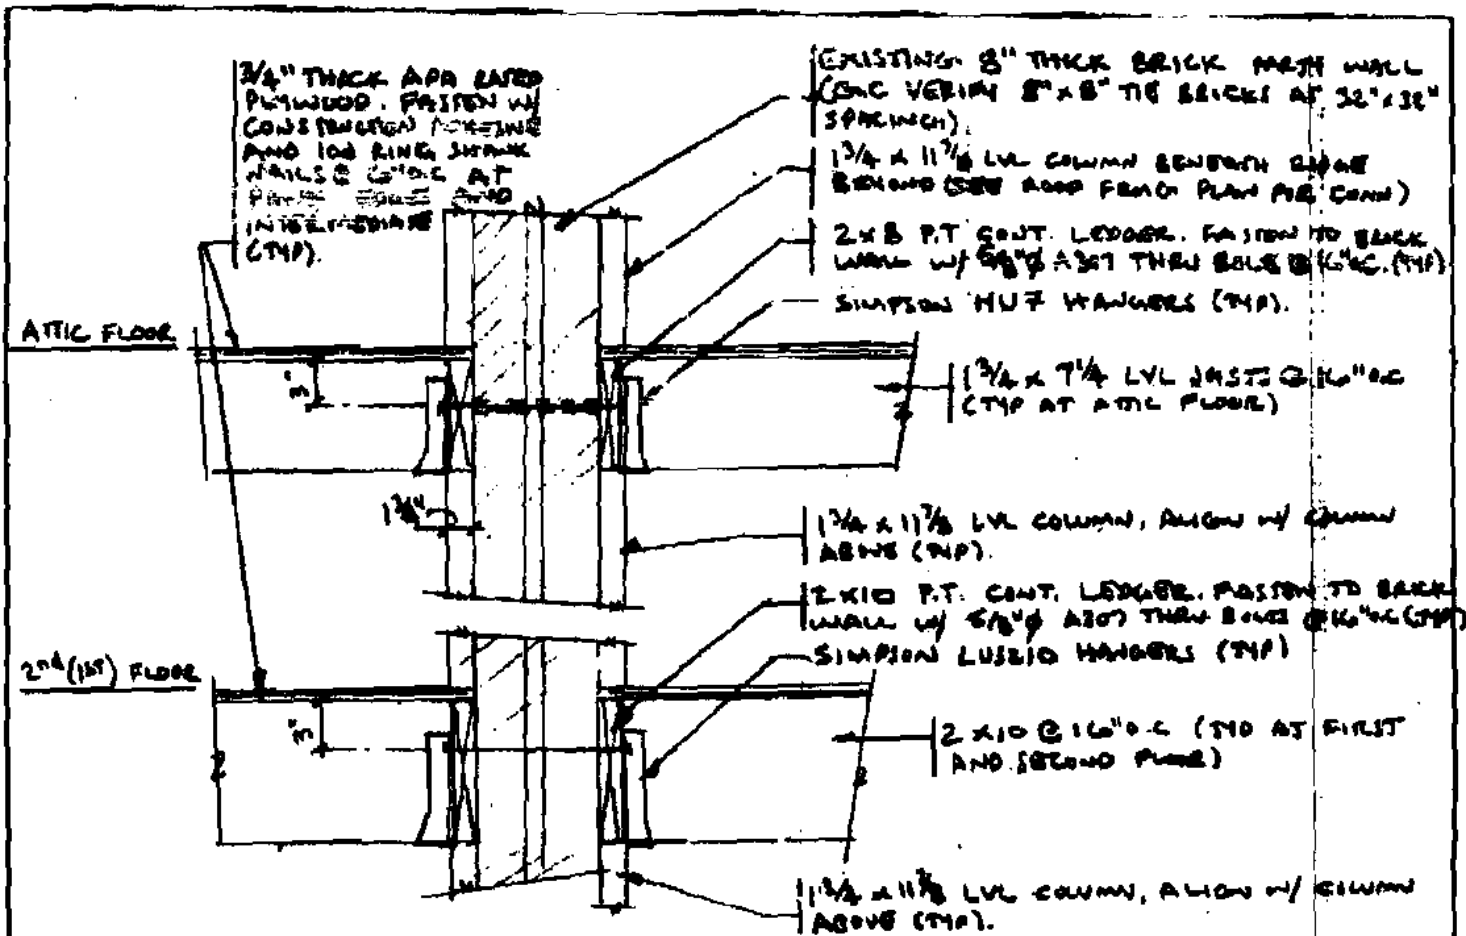 3/4" THICK APA RATED
PLYWOOD. FASTEN W/
CONSTRUCTION
AND 10d RING SHANK
NAILS @ 6" O.C AT
AND
INTERMEDIATE
(TYP).
EXISTING 8" THICK BRICK PARTY WALL
(G.C VERIFY 8" x 8" TIE BRICKS AT 32" x 32"
SPACING)
1 3/4 x 11 7/8 LVL COLUMN BENEATH RIDGE
BEYOND (SEE ROOF FRMG PLAN FOR CONN)
2 x 8 P.T CONT. LEDGER. FASTEN TO BRICK
WALL W/ 5/8"φ A307 THRU BOLTS @ 16" OC. (TYP)
SIMPSON HU7 HANGERS (TYP).
ATTIC FLOOR
3"
1 3/4 x 7 1/4 LVL JOISTS @ 16" O.C
(TYP AT ATTIC FLOOR)
1 3/4"
1 3/4 x 11 7/8 LVL COLUMN, ALIGN W/ COLUMN
ABOVE (TYP).
2 x 10 P.T. CONT. LEDGER. FASTEN TO BRICK
WALL W/ 5/8"φ A307 THRU BOLTS @ 16" O.C (TYP)
SIMPSON LUS210 HANGERS (TYP)
2nd (1ST) FLOOR
3"
2 x 10 @ 16" O.C (TYP AT FIRST
AND SECOND FLOOR)
1 3/4 x 11 7/8 LVL COLUMN, ALIGN W/ COLUMN
ABOVE (TYP).